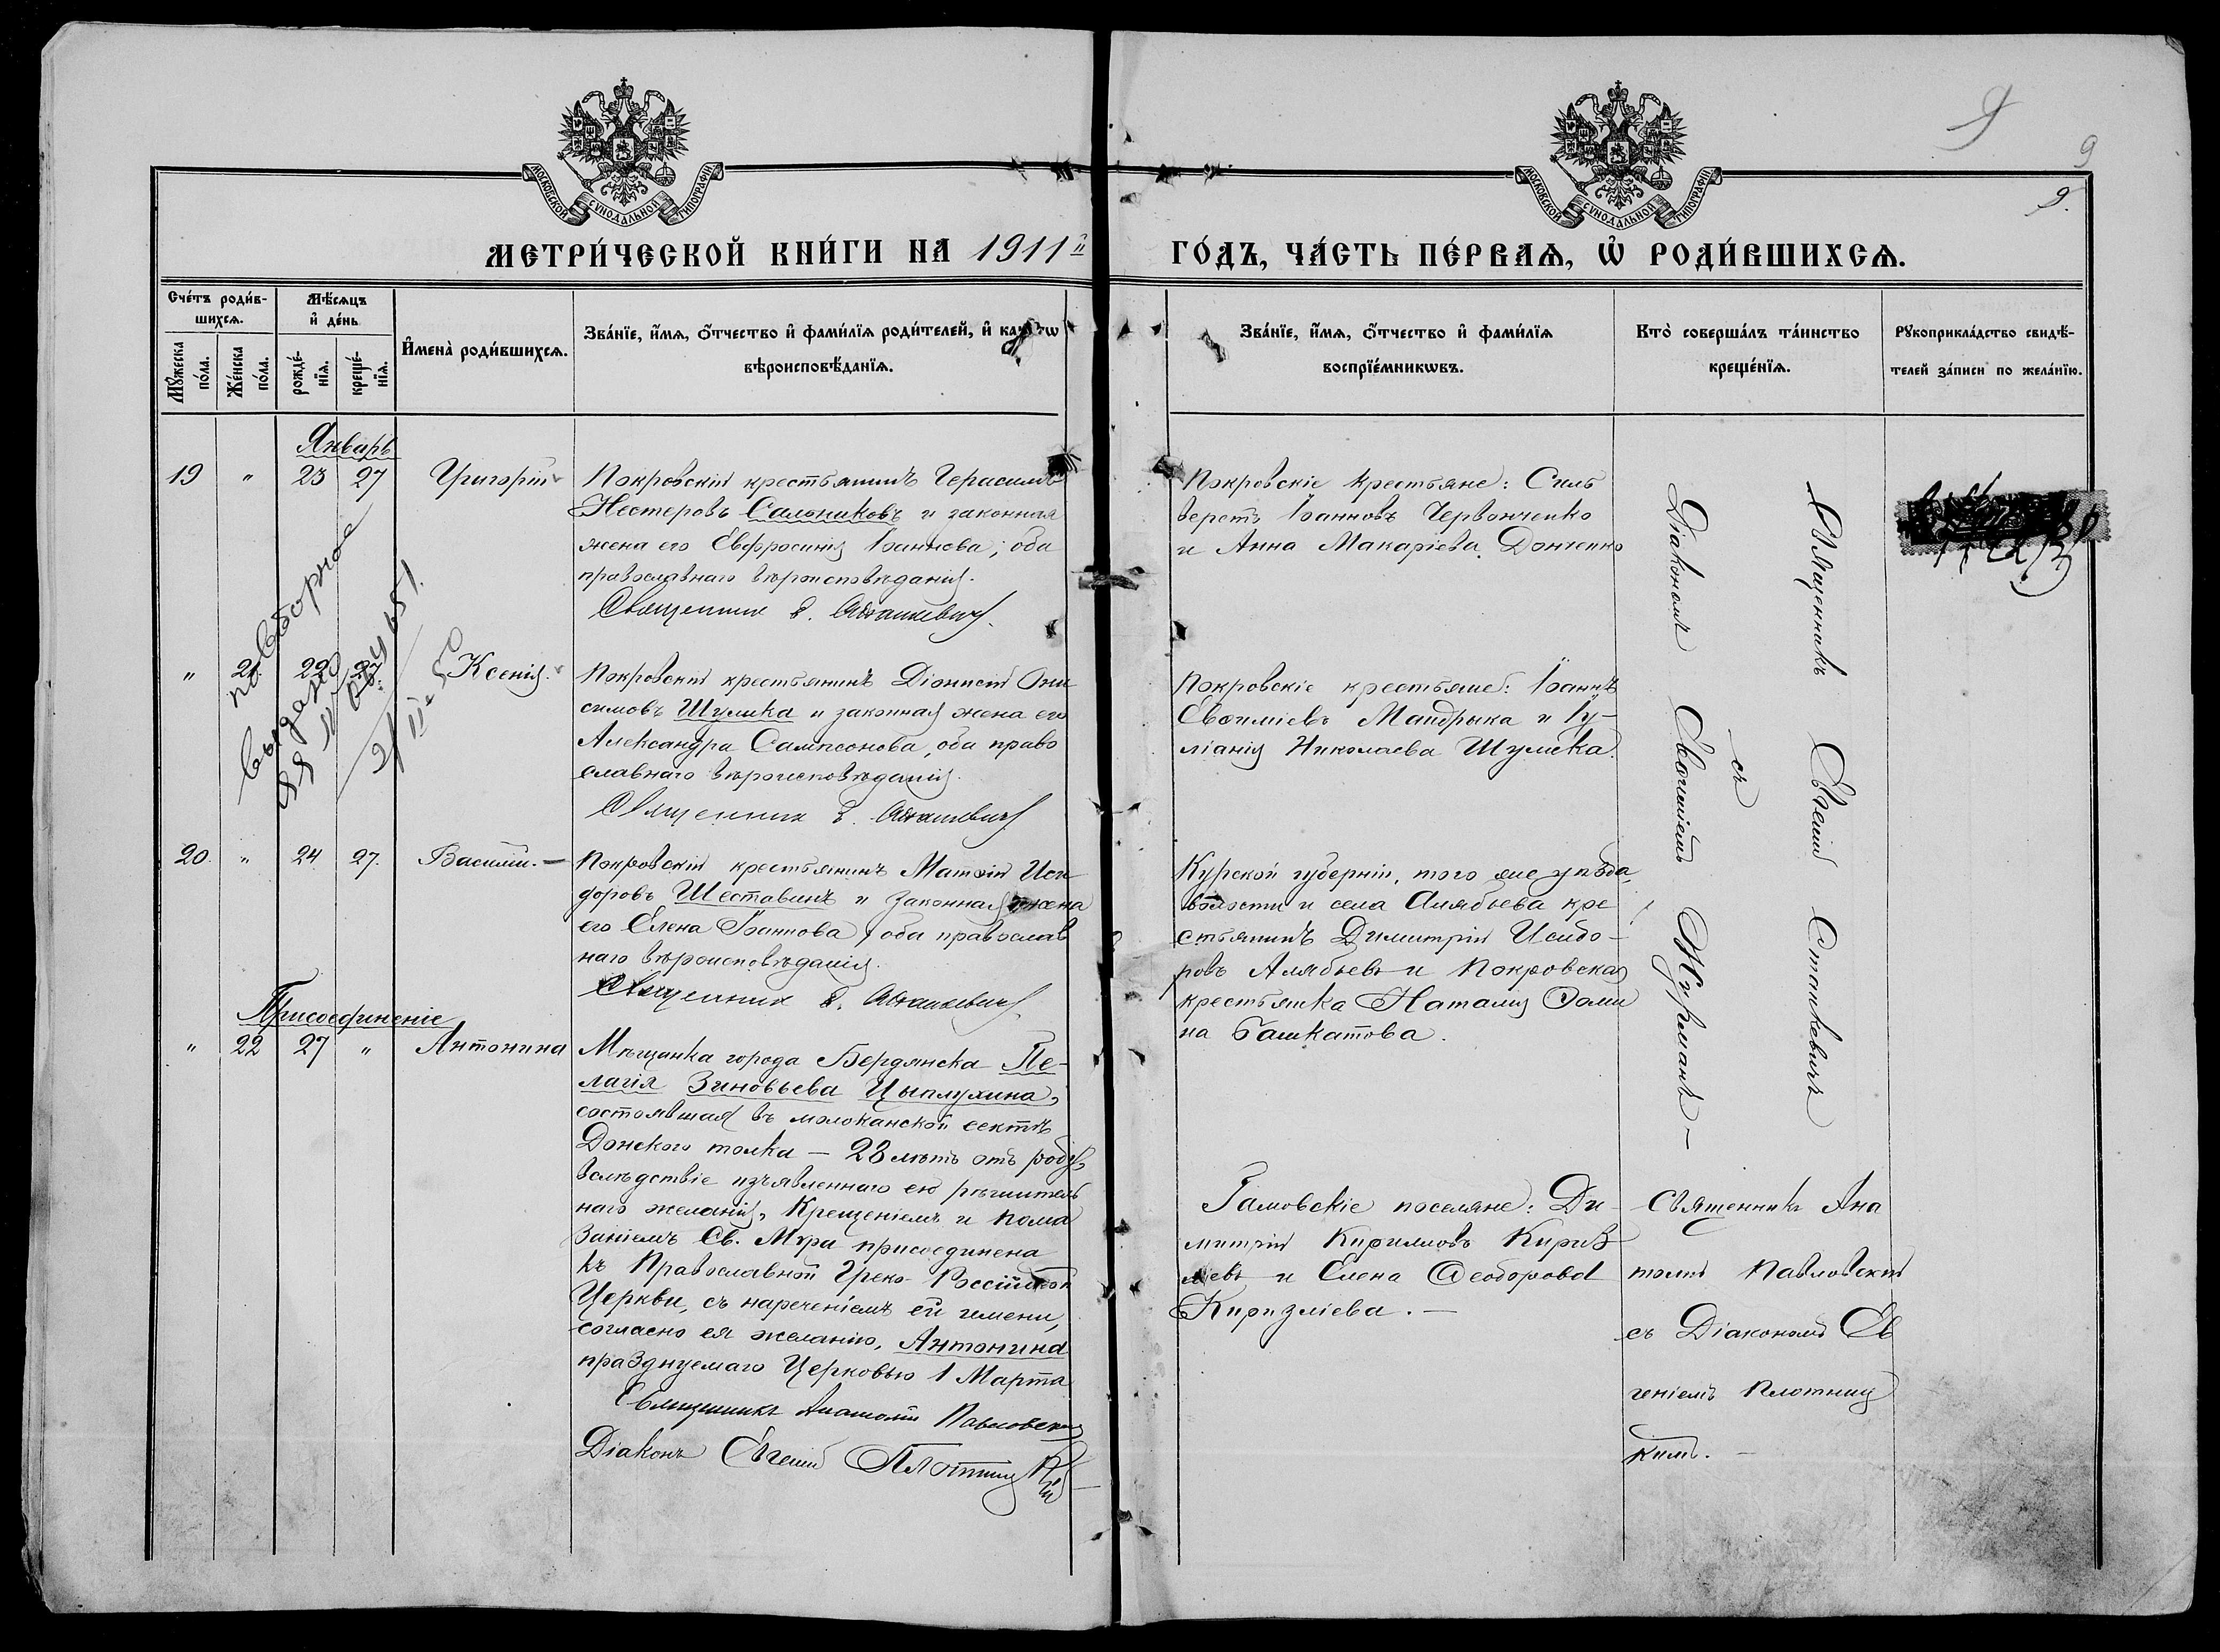 9
9
9.
МОСКОВСКОЙ СѴНОДАЛЬНОЙ ТИПОГРАФІИ
МОСКОВСКОЙ СѴНОДАЛЬНОЙ ТИПОГРАФІИ
МЕТРИ́ЧЕСКОЙ КНИ́ГИ НА 1911й
ГО́ДЪ, ЧА́СТЬ ПЕ́РВАѦ, Ѡ҆ РОДИ́ВШИХСѦ.
Сче́тъ роди́в-
шихсѧ.
Мꙋ́жеска по́ла.
Же́нска по́ла.
Мѣ́сѧцъ
и҆ де́нь
рожде́-
нїѧ.
креще́-
нїѧ.
И҆мена̀ роди́вшихсѧ.
Зва́нїе, и҆́мѧ, ѻ҆́тчество и҆ фами́лїѧ роди́телей, и҆
вѣроисповѣ́данїѧ.
Зва́нїе, и҆́мѧ, ѻ҆́тчество и҆ фами́лїѧ
воспрїе́мникѡвъ.
Кто̀ соверша́лъ та́инство
креще́нїѧ.
Рꙋкоприкла́дство свидѣ́-
телей за́писи по жела́нїю.
Январь
19 " 23 27 Григорій
Покровскій крестьянинъ Герасимъ
Нестеровъ Сальниковъ и законная
жена его Евфросинія Іоаннова; оба
православнаго вѣроисповѣданія.
Священник Е. Станкевич.
Покровскіе крестьяне: Силь
верстъ Іоанновъ Червонченко
и Анна Макаріева Донченко
повторное
выдано
" 21. 22 27. Ксенія.
Покровскій крестьянинъ Діонисій Они
симовъ Шулика и законная жена его
Александра Сампсонова, оба право
славнаго вѣроисповѣданія.
Священник Е. Станкевич
Покровскіе крестьяне: Іоаннъ
Евѳиміевъ Мандрыка и Іу-
ліанія Николаева Шулика.
20. " 24 27. Василій. —
Покровскій крестьянинъ Матѳій Иси
доровъ Шестовинъ и законная жена
его Елена Іоаннова, оба православ
наго вѣроисповѣданія.
Священник Е. Станкевич
Курской губерніи, того же уѣзда,
волости и села Алябьева кре
стьянинъ Димитрій Исидо-
ровъ Алябьевъ и Покровская
крестьянка Наталія Ѳоми
на Башкатова.
Священникъ Евгеній Станкевичъ
съ
Діакономъ Евѳиміемъ
Присоединеніе
" 22 27 " Антонина
Мѣщанка города Бердянска Пе-
лагія Зиновьева Цыплухина,
состоявшая въ молоканской сектѣ
Донского толка — 28 лѣтъ отъ роду,
вслѣдствіе изъявленнаго ею рѣшитель
наго желанія, Крещеніемъ и пома
заніемъ Св. Мѵра присоединена
къ Православной Греко-Россійской
Церкви, съ нареченіемъ ей имени,
согласно ея желанію, Антонина
празднуемаго Церковью 1 Марта
Священникъ Анатолій Павловскій
Діаконъ Евгеній Плотницкій
Гамовскіе поселяне: Ди-
митрій Кирилловъ Кириз
ліевъ и Елена Ѳеодорова
Киризліева. —
Священникъ Ана
толій Павловскій
съ Діакономъ Ев
геніемъ Плотниц
кимъ. —